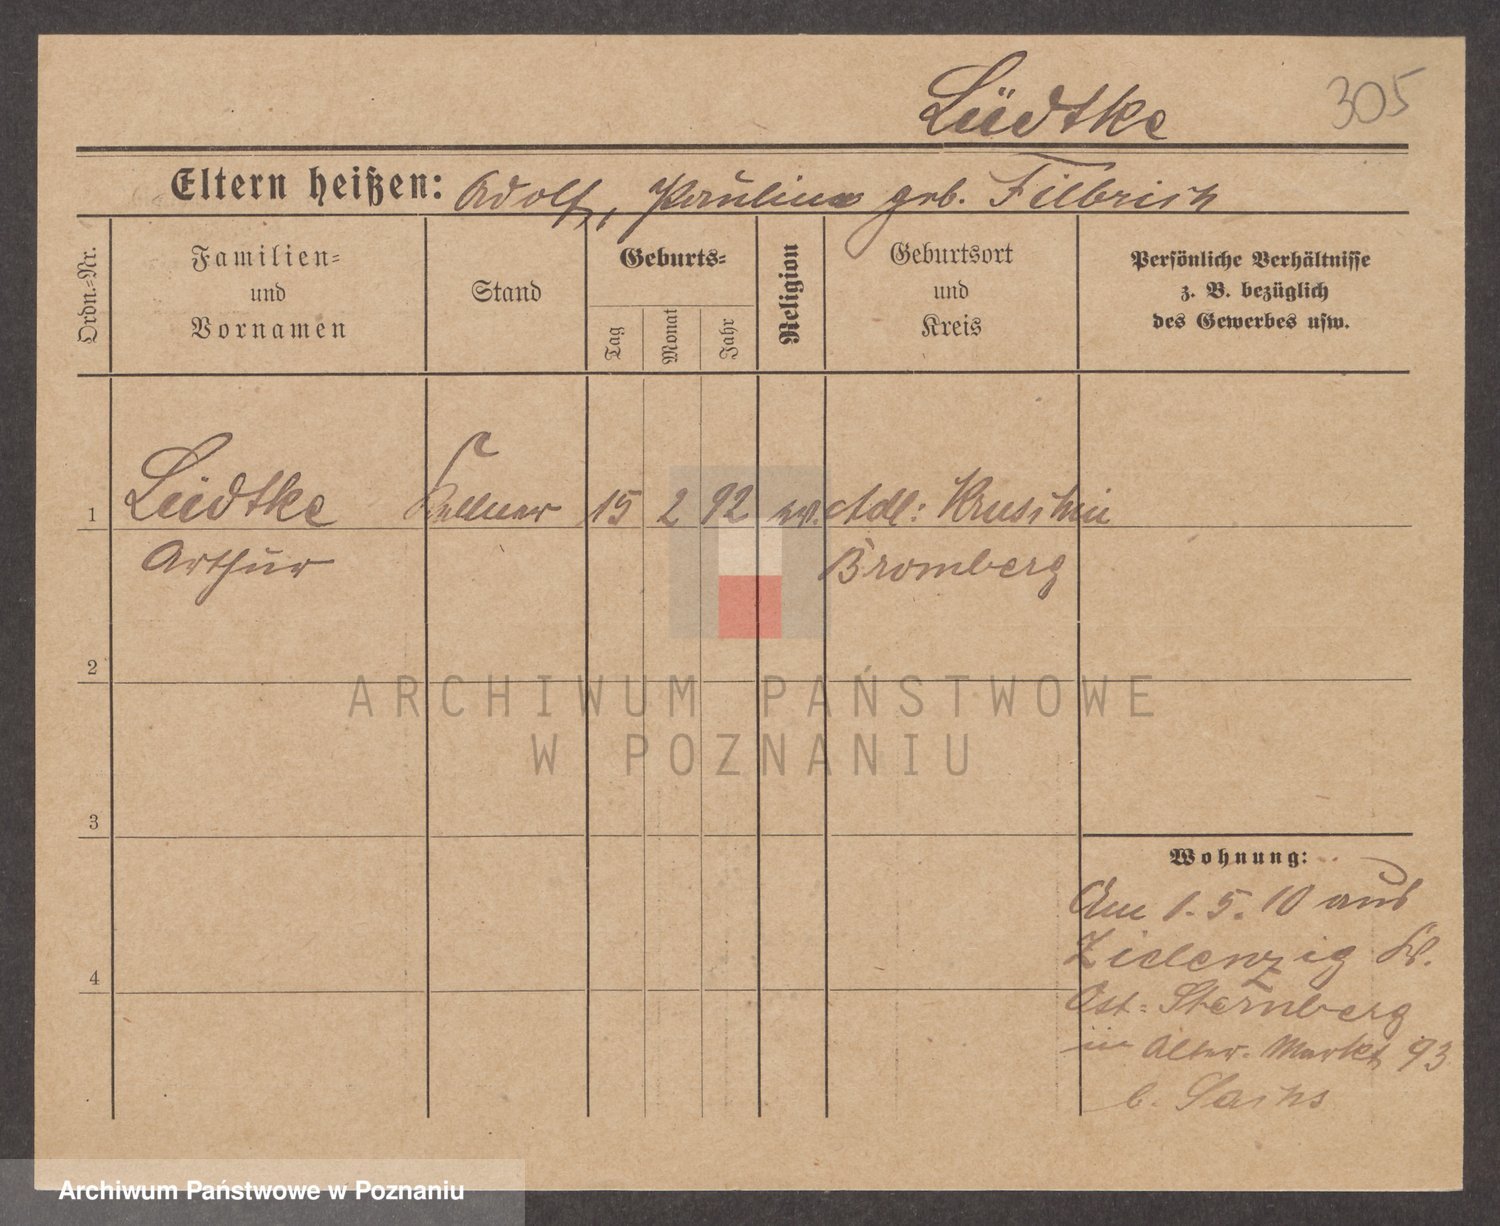 Lüdtke
305
Eltern heißen: Adolf, Pauline geb. Filbrich
Ordn.-Nr.
Familien-
und
Vornamen
Stand
Geburts-
Tag
Monat
Jahr
Religion
Geburtsort
und
Kreis
Persönliche Verhältnisse
z. B. bezüglich
des Gewerbes usw.
1 Lüdtke Kellner 15 2 92 ev. Adl: Kruschin
Arthur Bromberg
2
3
4
Wohnung:
Am 1.5.10 aus
Zielenzig Kr.
Ost-Sternberg
in Alter Markt 93
b. Sachs
ARCHIWUM PAŃSTWOWE
W POZNANIU
Archiwum Państwowe w Poznaniu